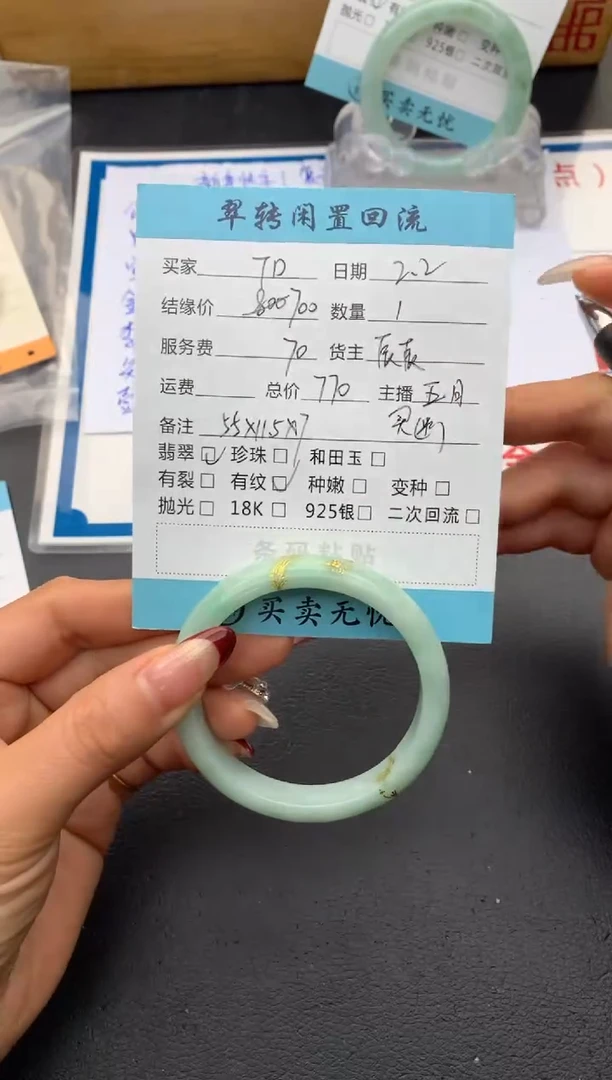 抛光□ 种嫩□ 变种
925银□ 二次回
买卖无忧
点）
翠转闲置回流
买家 TD 日期 2.2
结缘价 800 700 数量 1
服务费 70 货主 辰辰
运费 总价 770 主播 五月
备注 55×11.5×7 买断
翡翠☑ 珍珠□ 和田玉□
有裂□ 有纹☑ 种嫩□ 变种□
抛光□ 18K□ 925银□ 二次回流□
条码粘贴
买卖无忧